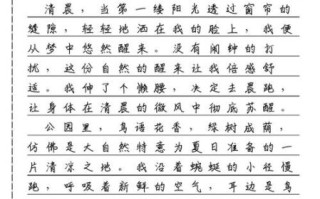 清晨，当第一缕阳光透过窗帘的
缝隙，轻轻地洒在我的脸上，我便
从梦中悠然醒来。没有闹钟的打
扰，这份自然的醒来让我倍感舒
适。我伸了个懒腰，决定去晨跑，
让身体在清晨的微风中彻底苏醒。
公园里，鸟语花香，绿树成荫，
仿佛是大自然特意为夏日准备的一
片清凉之地。我沿着蜿蜒的小径慢
跑，呼吸着新鲜的空气，耳边是鸟